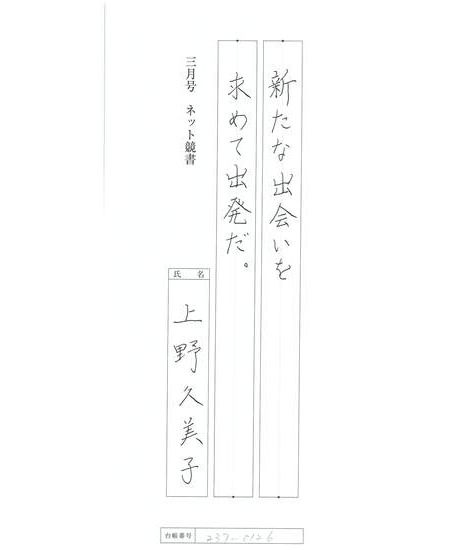 新たな出会いを
求めて出発だ。
三月号 ネット競書
氏名
上野久美子
台帳番号 237-0126